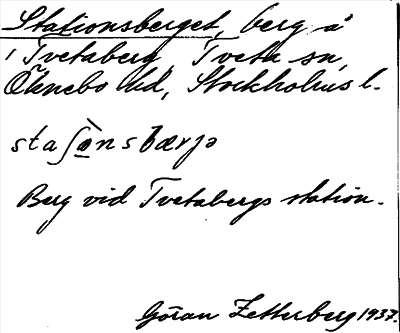 Stationsberget, berg å
i Tvetaberg, Tveta sn,
Öknebo hd, Stockholms l.
staʃὼnsbærjə
Berg vid Tvetabergs station.
Göran Zetterberg 1937.